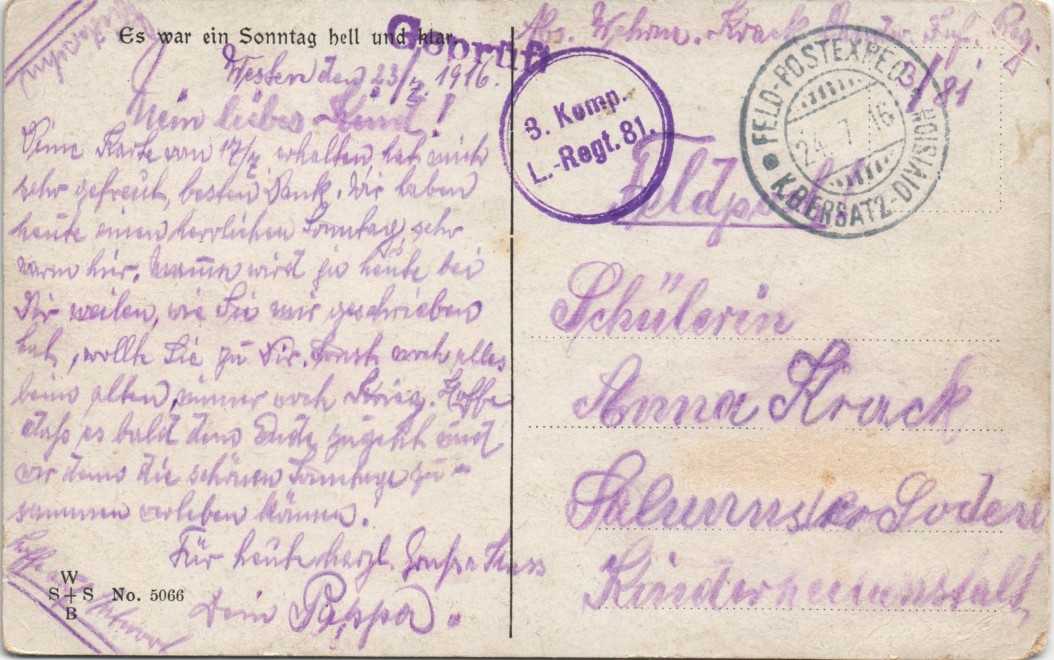 Es war ein Sonntag hell und klar.
Westen den 23/7. 1916.
Mein liebes Kind!
Deine Karte von 17/7 erhalten, hat mich
sehr gefreut, besten Dank. Wir haben
heute einen herrlichen Sonntag, sehr
warm hir. Mama wird ja heute bei
Dir weilen, wie Sie mir geschrieben
hat, wollte Sie zu Dir. Sonst noch alles
beim alten, immer noch Krieg. Hoffe
daß es bald dem Ende zugeht und
wir dann die schönen Sonntage zu-
sammen verleben können.
Für heute herzl. Gruß u. Kuss
Dein Pappa.
W
S S
B
No. 5066
Geprüft
Abs. Wehrm. Krack Inf. Reg.
3/81
3. Komp.
L.-Regt. 81.
FELD-POSTEXPED
24 7 16
K.B.ERSATZ-DIVISION
Feldpost
Schülerin
Anna Krack
Soden
Kinderheilanstalt